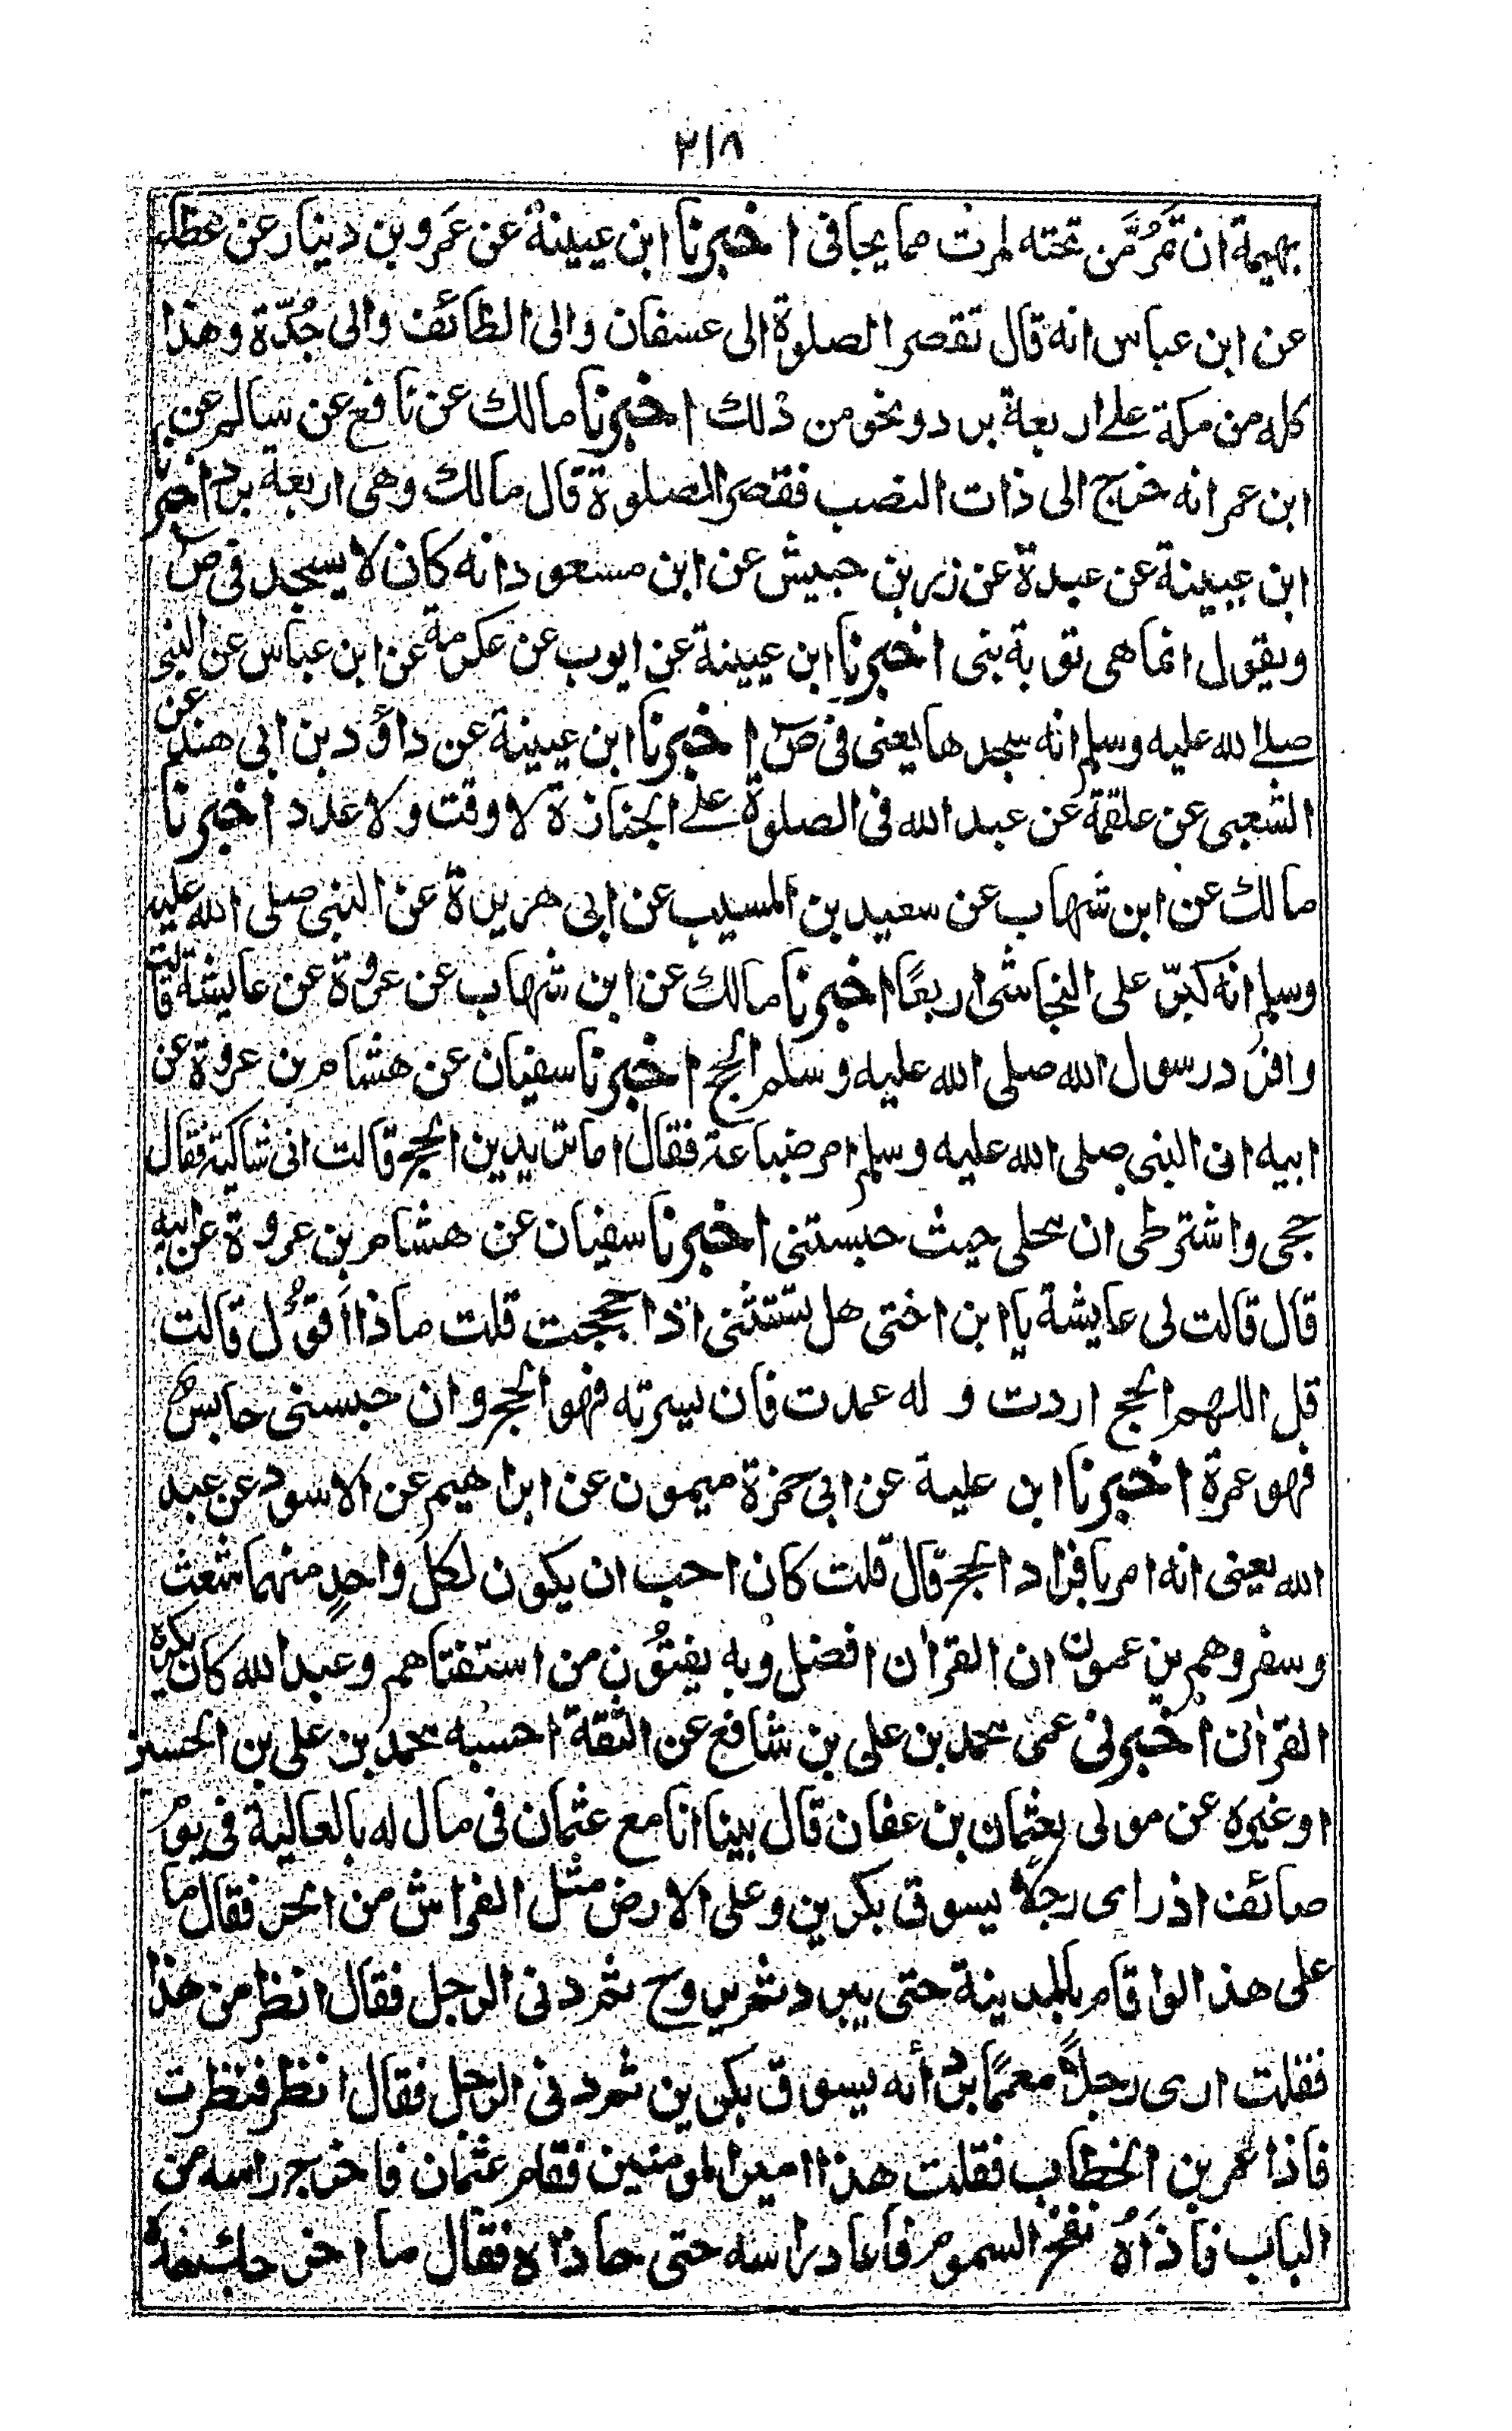 ٢١٨
بهيمة ان تَمُرَّ من تحته لمرت مما يجافى اخبرنا ابن عيينة عن عمرو بن دينار عن عطاء
عن ابن عباس انه قال تقصر الصلوة الى عسفان والى الطائف والى جُدّة وهذا
كله من مكة على اربعة برد ونحو من ذلك اخبرنا مالك عن نافع عن سالم عن
ابن عمر انه خرج الى ذات النصب فقصر الصلوة قال مالك وهى اربعة برد اخبرنا
ابن عيينة عن عبدة عن زر بن حبيش عن ابن مسعود انه كان لا يسجد فى صٓ
ويقول انما هى توبة نبى اخبرنا ابن عيينة عن ايوب عن عكرمة عن ابن عباس عن النبى
صلے الله عليه وسلم انه سجدها يعنى فى صٓ اخبرنا ابن عيينة عن داؤد بن ابى هند عن
الشعبى عن علقمة عن عبد الله فى الصلوة على الجنازة لا وقت ولا عدد اخبرنا
مالك عن ابن شهاب عن سعيد بن المسيب عن ابى هريرة عن النبى صلى الله عليه
وسلم انه كبّر على النجاشى اربعًا اخبرنا مالك عن ابن شهاب عن عروة عن عايشة قالت
وافرد رسول الله صلى الله عليه وسلم الحج اخبرنا سفيان عن هشام بن عروة عن
ابيه ان النبى صلى الله عليه وسلم امر ضباعة فقال اما تريدين الحج قالت انى شاكية فقال
حجى واشترطى ان محلى حيث حبستنى اخبرنا سفيان عن هشام بن عروة عن ابيه
قال قالت لى عايشة يا ابن اختى هل تستثنى اذا حججت قلت ماذا اقول قالت
قل اللهم الحج اردت و له عمدت فان يسرته فهو الحج وان حبسنى حابس
فهو عمرة اخبرنا ابن علية عن ابى حمزة ميمون عن ابراهيم عن الاسود عن عبد
الله يعنى انه امر بافراد الحج قال قلت كان احب ان يكون لكل واحدٍ منهما شعث
وسفر وهم يزعمون ان القرٰن افضل وبه يفتُون من استفتاهم وعبد الله كان يكره
القرٰن اخبرنى عمى محمد بن على بن شافع عن الثقة احسبه محمد بن على بن الحسين
او غيره عن مولى بعثمان بن عفان قال بينا انا مع عثمان فى مال له بالعالية فى يوم
صائف اذ راى رجلاً يسوق بكرين وعلى الارض مثل الفراش من الحر فقال ما
على هذا لو اقام بالمدينة حتى يبرد ثم يروح ثم دنى الرجل فقال انظر من هذا
فقلت ارى رجلاً معممًا بردائه يسوق بكرين ثم دنى الرجل فقال انظر فنظرت
فاذا عمر بن الخطاب فقلت هذا امير المومنين فقام عثمان فاخرج راسه من
الباب فاذاه نفخ السموم فاعاد راسه حتى حاذاه فقال ما اخرجك هذه